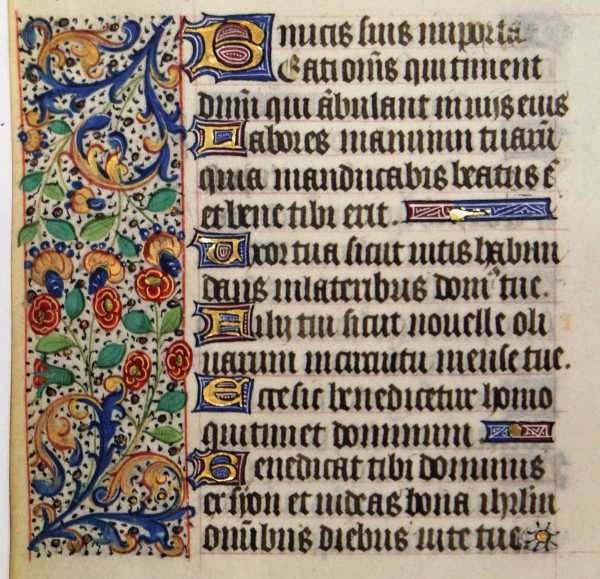 nimicis suis in porta
Beati om̄s qui timent
dnm̄ qui ābulant in uijs eius
Labores manuum tuarū
quia manducabis beatus ē
et bene tibi erit.
Uxor tua sicut uitis habun
dans in lateribus domꝰ tue.
Filij tui sicut nouelle oli
uarum in circuitu mense tue.
Ecce sic benedicetur homo
qui timet dominum
Benedicat tibi dominus
ex syon et uideas bona ihrlm̄
om̄ibus diebus uite tue.